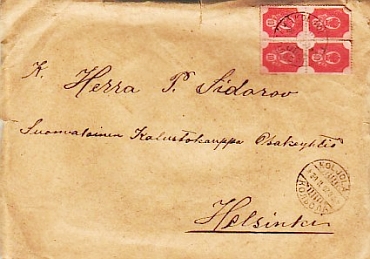 K. Herra P. Sidorov
Suomalainen Kalustokauppa Osakeyhtiö
Helsinki